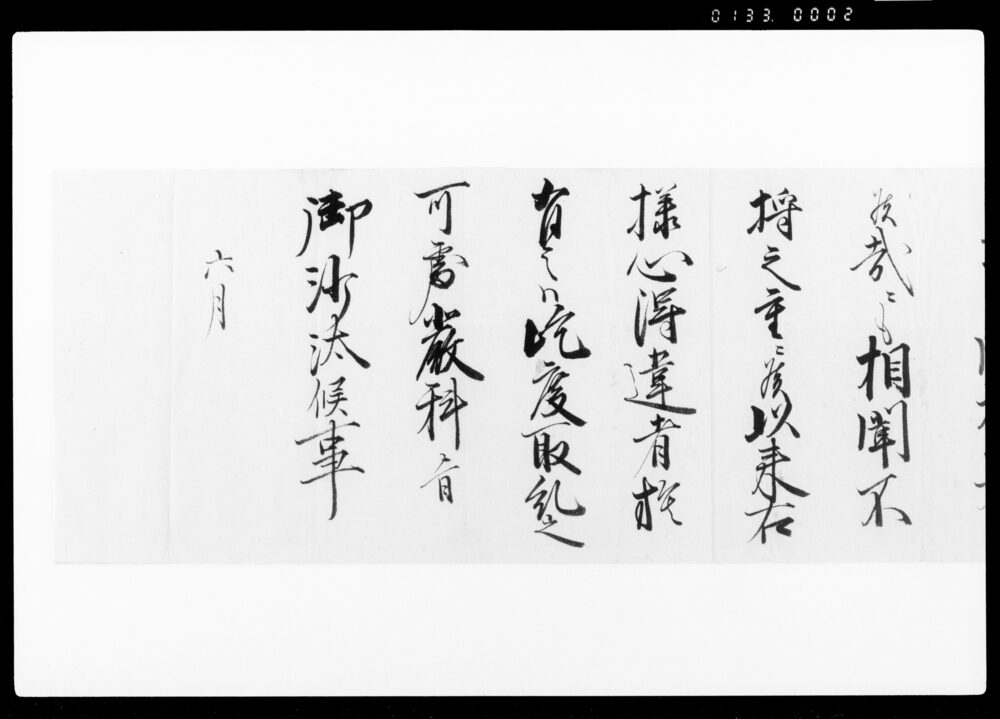 0133. 0002
哉ニも相聞不
埒之至ニ候以来右
様心得違者於
有之ハ屹度取糺之
可處嚴科之旨
御沙汰候事
六月